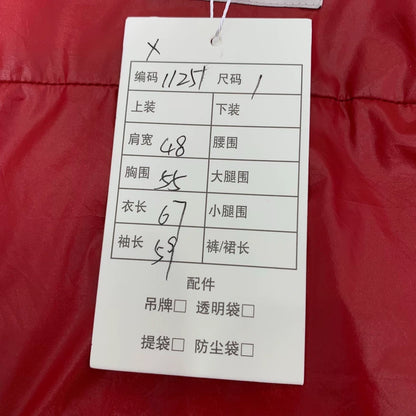 ×
编码 11251 尺码 1
上装 下装
肩宽 48 腰围
胸围 55 大腿围
衣长 67 小腿围
袖长 59 裤/裙长
配件
吊牌□ 透明袋□
提袋□ 防尘袋□